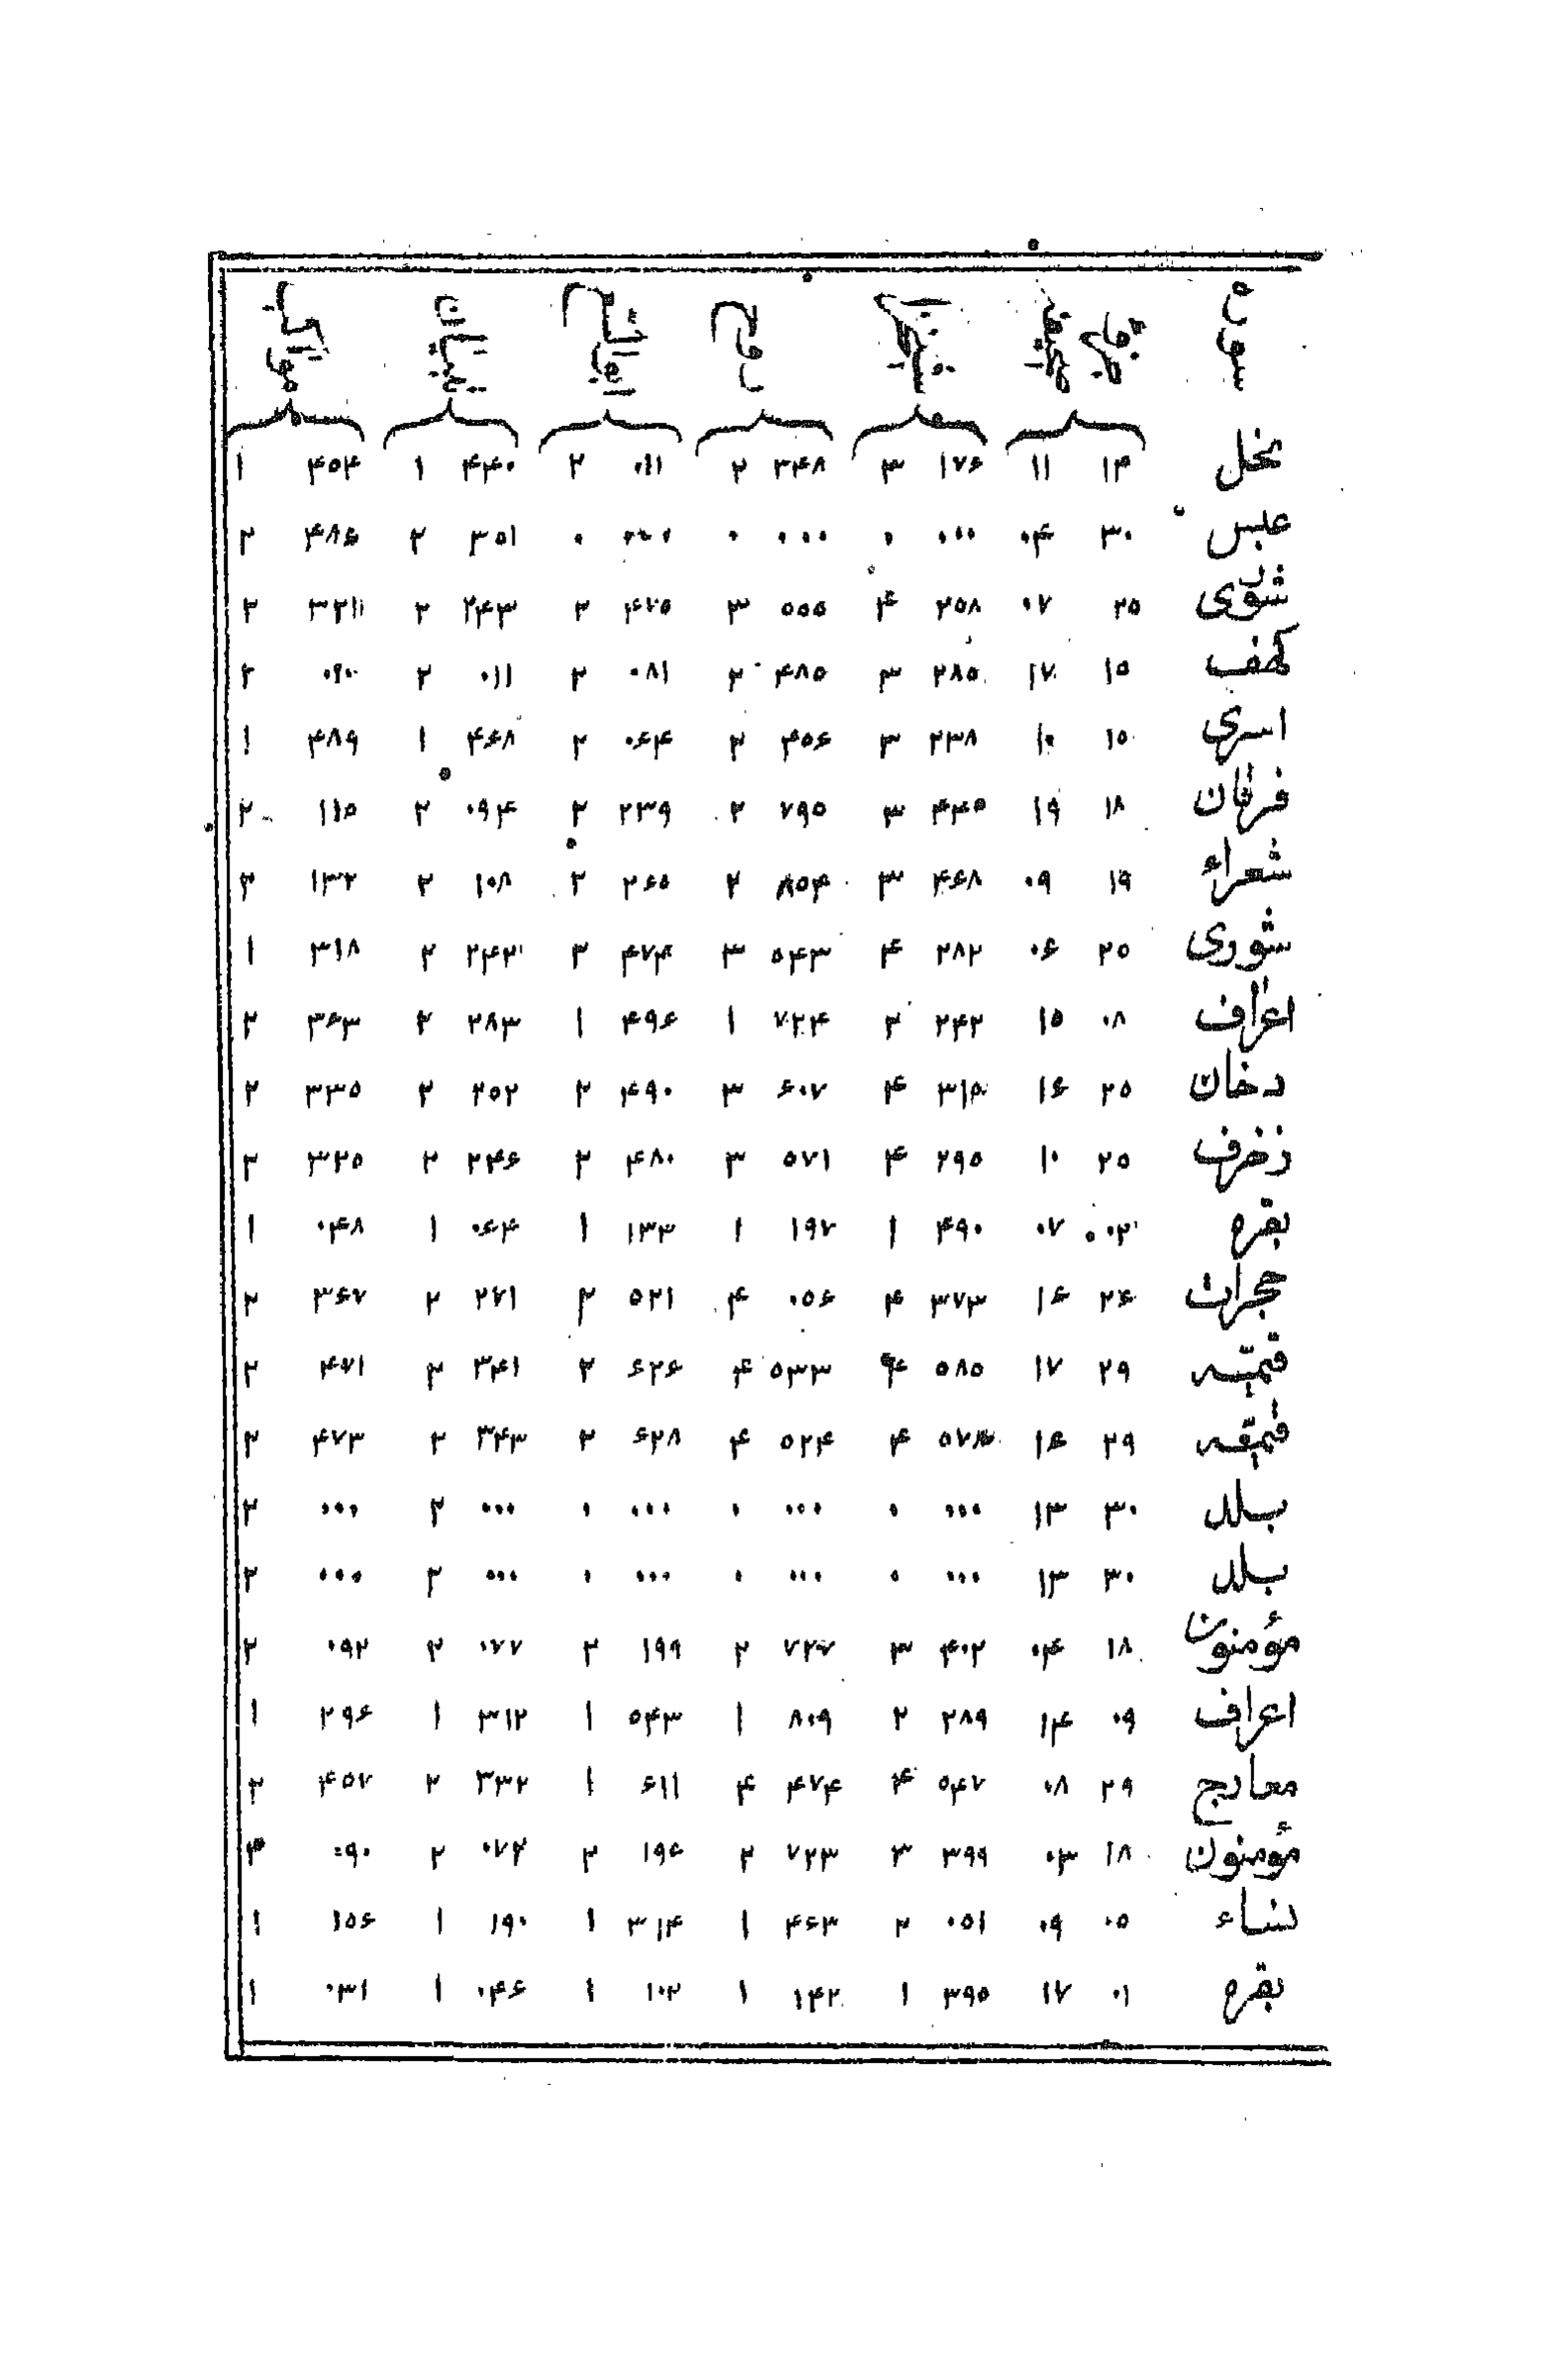 سورة
نحل ۱۴ ۱۱ ۱۷۶ ۳ ۳۴۸ ۲ ۰۱۱ ۲ ۴۴۰ ۱ ۴۵۴ ۱
عبس ۳۰ ۰۴ ۰۰۰ ۰ ۰۰۰ ۰ ۰۰۰ ۰ ۳۵۱ ۲ ۴۸۶ ۲
شوری ۲۵ ۰۷ ۲۵۸ ۴ ۵۵۵ ۳ ۴۷۵ ۲ ۲۴۳ ۲ ۳۲۱ ۲
کهف ۱۵ ۱۷ ۲۸۵ ۳ ۴۸۵ ۲ ۰۸۱ ۲ ۰۱۱ ۲ ۰۲۰ ۲
اسری ۱۵ ۱۰ ۲۳۸ ۳ ۴۵۶ ۲ ۰۶۴ ۲ ۴۶۸ ۱ ۴۸۹ ۱
فرقان ۱۸ ۱۹ ۴۴۵ ۳ ۷۹۵ ۲ ۲۳۹ ۲ ۰۹۴ ۲ ۱۱۵ ۲
شعراء ۱۹ ۰۹ ۴۶۸ ۳ ۸۵۴ ۲ ۲۶۵ ۲ ۱۰۸ ۲ ۱۳۲ ۲
شوری ۲۵ ۰۶ ۲۸۲ ۴ ۵۴۳ ۳ ۴۷۴ ۲ ۲۴۲ ۲ ۳۱۸ ۱
اعراف ۰۸ ۱۵ ۲۴۲ ۲ ۷۲۴ ۱ ۴۹۶ ۱ ۲۸۳ ۲ ۳۶۳ ۲
دخان ۲۵ ۱۶ ۳۱۵ ۴ ۶۰۷ ۳ ۴۹۰ ۲ ۲۵۲ ۲ ۳۳۵ ۲
ذخرف ۲۵ ۱۰ ۲۹۵ ۴ ۵۷۱ ۳ ۴۸۰ ۲ ۲۴۶ ۲ ۳۲۵ ۲
بقره ۰۲ ۰۷ ۴۹۰ ۱ ۱۹۷ ۱ ۱۳۳ ۱ ۰۶۴ ۱ ۰۴۸ ۱
حجرات ۲۶ ۱۶ ۳۷۳ ۴ ۰۵۶ ۴ ۵۲۱ ۲ ۲۷۱ ۲ ۳۶۷ ۲
قیمیّه ۲۹ ۱۷ ۵۸۵ ۴ ۵۳۳ ۴ ۶۲۶ ۲ ۳۴۱ ۲ ۴۷۱ ۲
۲۹ ۱۶ ۴ ۵۲۴ ۴ ۶۲۸ ۲ ۳۴۳ ۲ ۴۷۳ ۲
بلد ۳۰ ۱۳ ۰۰۰ ۰ ۰۰۰ ۰ ۰۰۰ ۰ ۰۰۰ ۲ ۰۰۰ ۲
بلد ۳۰ ۱۳ ۰۰۰ ۰ ۰۰۰ ۰ ۰۰۰ ۰ ۰۰۰ ۲ ۰۰۰ ۲
مؤمنون ۱۸ ۰۴ ۴۰۲ ۳ ۷۲۷ ۲ ۱۹۹ ۲ ۰۷۷ ۲ ۰۹۲ ۲
اعراف ۰۹ ۱۴ ۲۸۹ ۲ ۸۰۹ ۱ ۵۴۳ ۱ ۳۱۲ ۱ ۲۹۶ ۱
معارج ۲۹ ۰۸ ۵۴۷ ۴ ۴۷۴ ۴ ۶۱۱ ۱ ۳۳۲ ۲ ۴۵۷ ۲
مؤمنون ۱۸ ۰۳ ۳۹۹ ۳ ۷۲۳ ۲ ۱۹۶ ۲ ۰۷۲ ۲ ۰۹۰ ۳
نساء ۰۵ ۰۹ ۰۵۱ ۲ ۴۶۳ ۱ ۳۱۴ ۱ ۱۹۰ ۱ ۱۵۶ ۱
بقره ۰۱ ۱۷ ۳۹۵ ۱ ۱۴۲ ۱ ۱۰۲ ۱ ۰۴۶ ۱ ۰۳۱ ۱